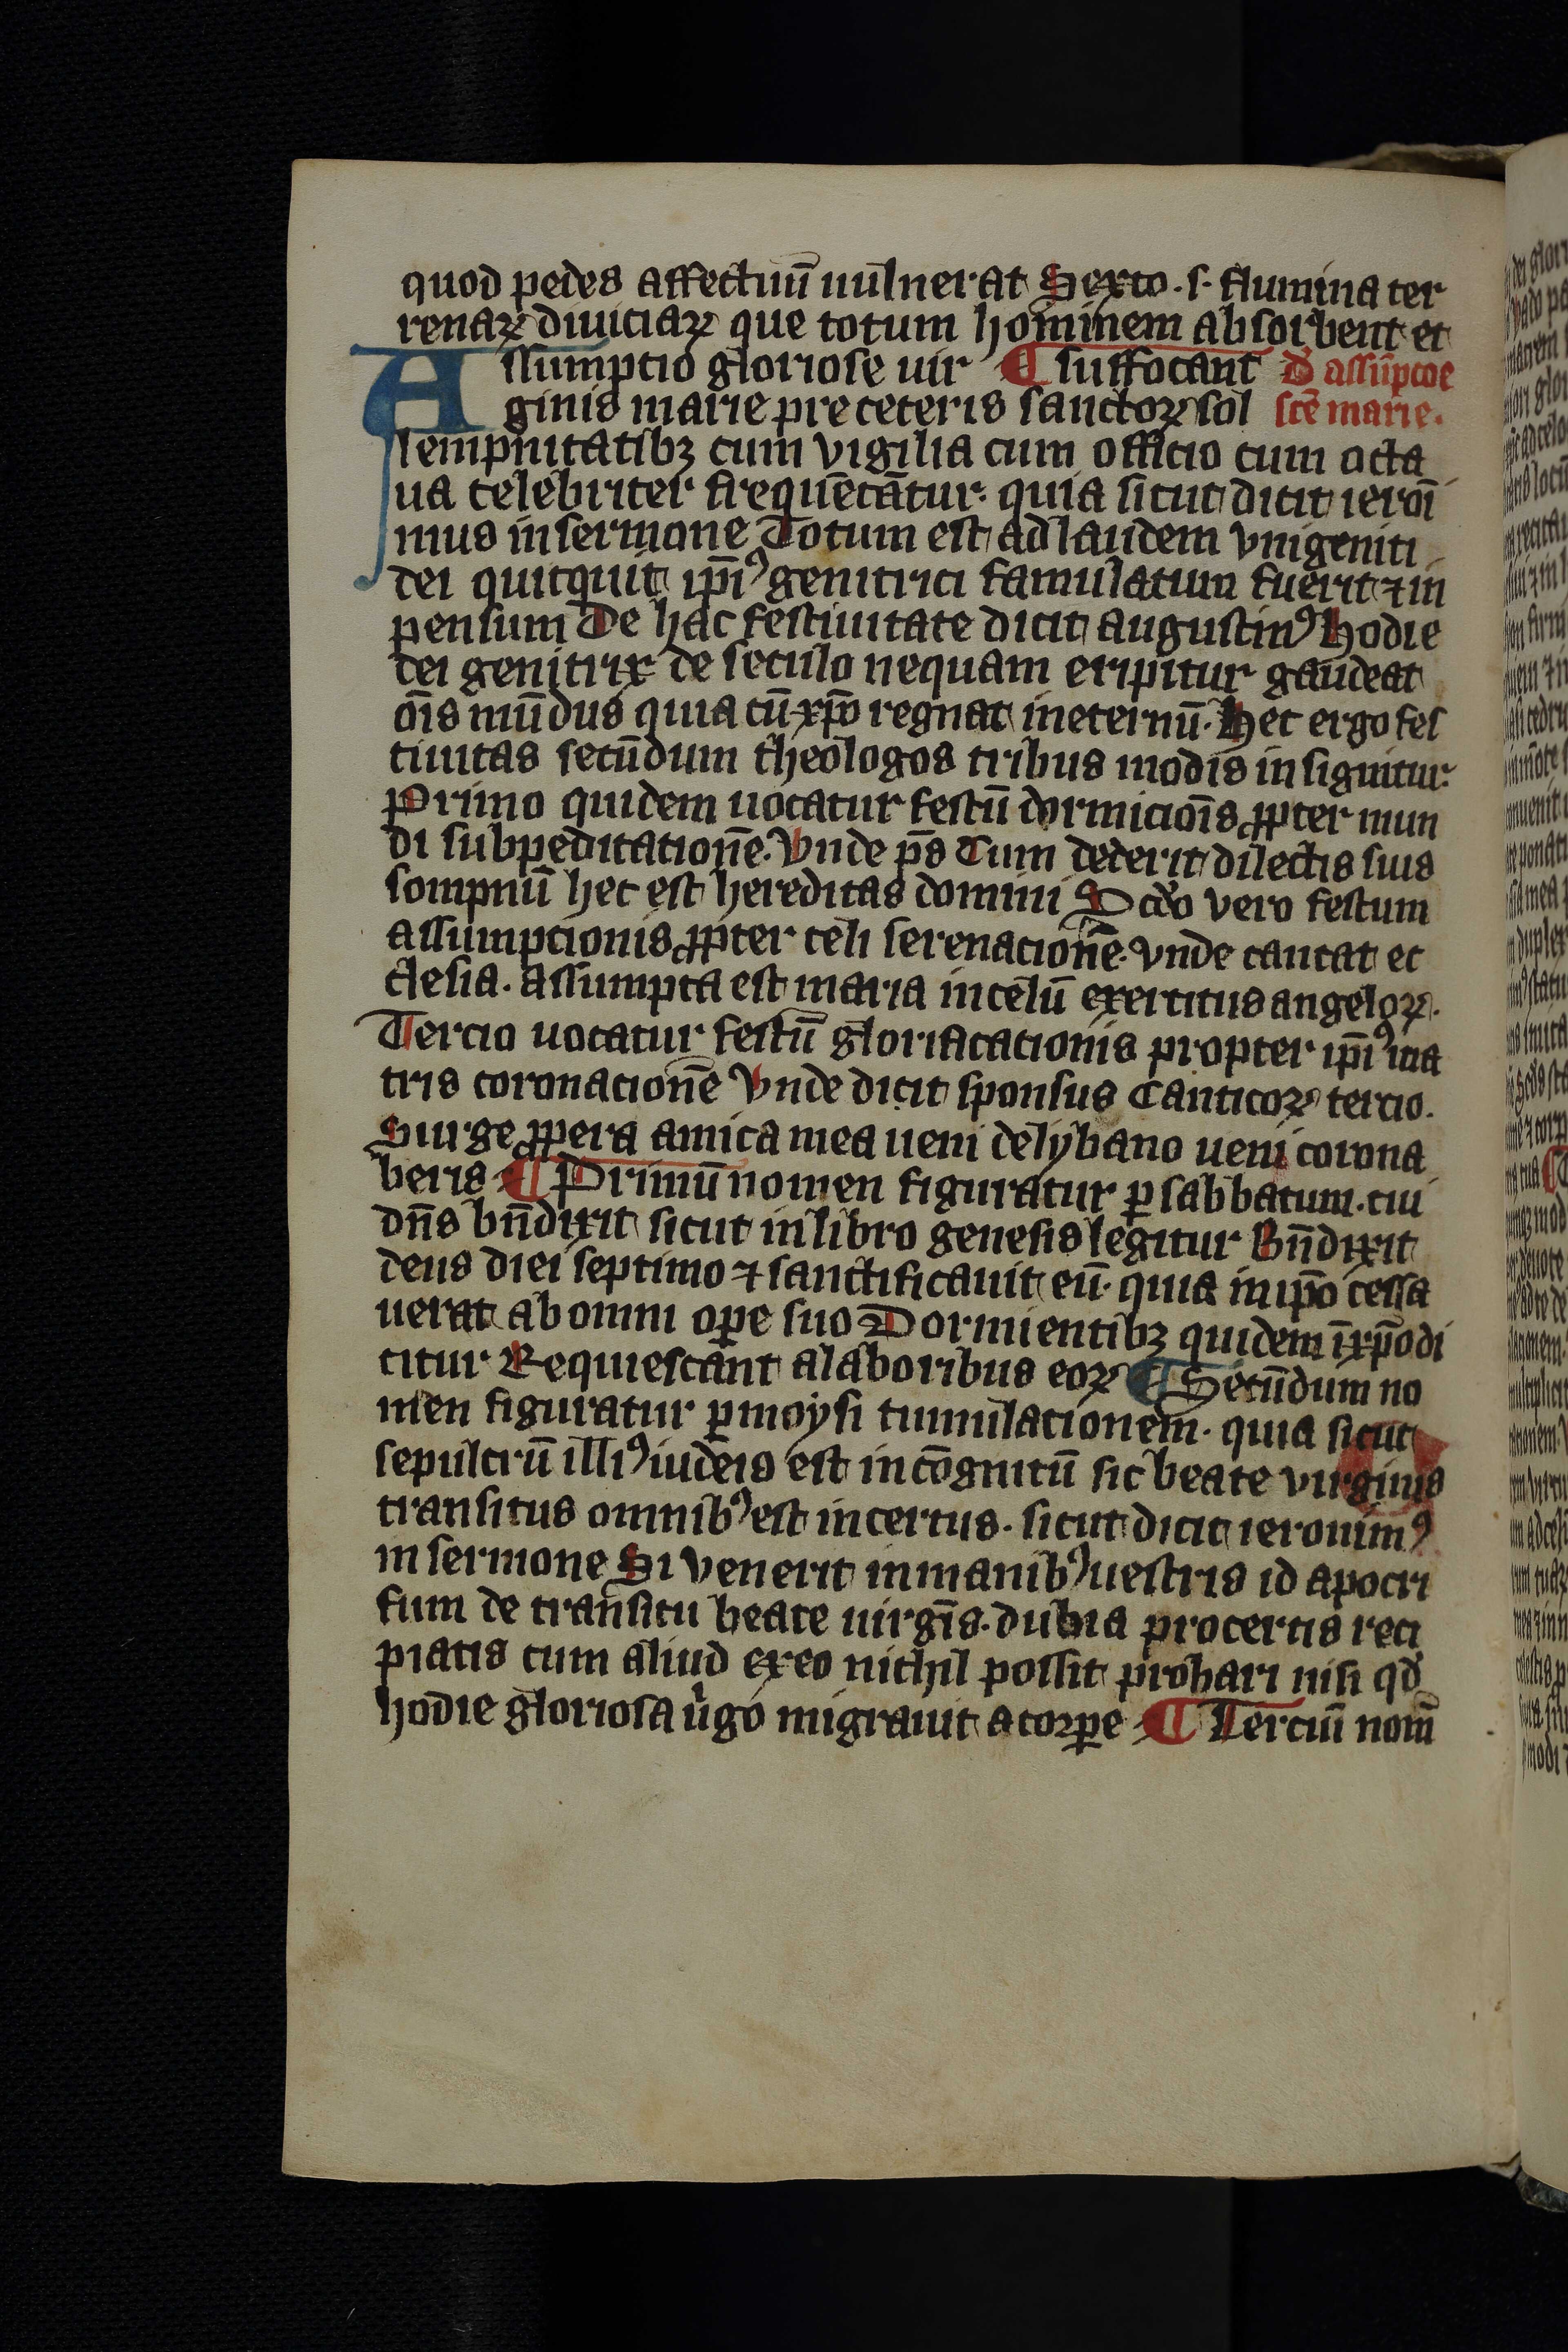 quod pedes affectuū uulnerat Sexto .s. flumina ter
renaꝝ diuiciaꝝ que totum hominem absorbent et
Assumptio gloriose uir ¶ suffocant D̕ assūpcōe
ginis marie pre ceteris sanctoꝝ sol scē marie.
lempnitatibꝫ cum vigilia cum officio cum octa
ua celebriter frequēcātur. quia sicut dicit ieroni
mus in sermone Totum est ad laudem vnigeniti
dei quitquit ip̄iꝰ genitrici famulatum fuerit ⁊ in
pensum De hac festiuitate dicit augustinꝰ Hodie
dei genitrix de seculo nequam eripitur gaudeat
oīs mūdus quia cū xp̄o regnat in eternū. Hec ergo fes
tiuitas secūdum theologos tribus modis insignitur
Primo quidem uocatur festū dormicioīs ꝓpter mun
di subpeditationē. Vnde p̄s Cum dederit dilectis suis
sompnū hec est hereditas domini Scd̕o vero festum
assumptionis ꝓpter celi serenacionē. vnde cantat ec
clesia. Assumpta est maria in celū exercitus angeloꝝ.
Tercio uocatur festū glorificacionis propter ip̄iꝰ ma
tris coronacionē Vnde dicit sponsus Canticoꝝ tercio.
Surge ꝓpera amica mea ueni de lybano ueni corona
beris ¶ Primū nomen figuratur ꝑ sabbatum. cui
dn̄s bn̄dixit sicut in libro genesis legitur Bn̄dixit
deus diei septimo ⁊ sanctificauit eū. quia in ip̄o cessa
uerat ab omni oꝑe suo Dormientibꝫ quidem ī xp̄o di
citur Requiescant a laboribus eoꝝ ¶ Secūdum no
men figuratur ꝑ moysi tumulacionem. quia sicut
sepulcrū illiꝰ iudeis est incōgnitū sic beate virginis
transitus omnibꝰ est incertus. sicut dicit ieronimꝰ
in sermone Si venerit in manibꝰ uestris id apocri
fum de transitu beate uirgīs. dubia pro certis reci
piatis cum aliud ex eo nichil possit probari nisi qd̕
hodie gloriosa u̕go migrauit a corꝑe ¶ Terciū nom̄